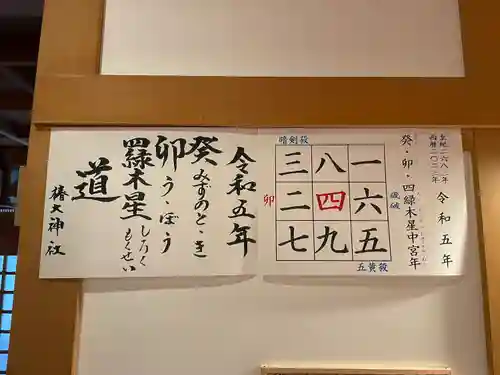 皇紀二六八三年
西暦二〇二三年
令和五年
癸・卯・四緑木星中宮年
暗剣殺
三八一
卯
二四六
歳破
七九五
五黄殺
令和五年
癸みずのと・き
卯う・ぼう
四緑木星しろくもくせい
道
椿大神社